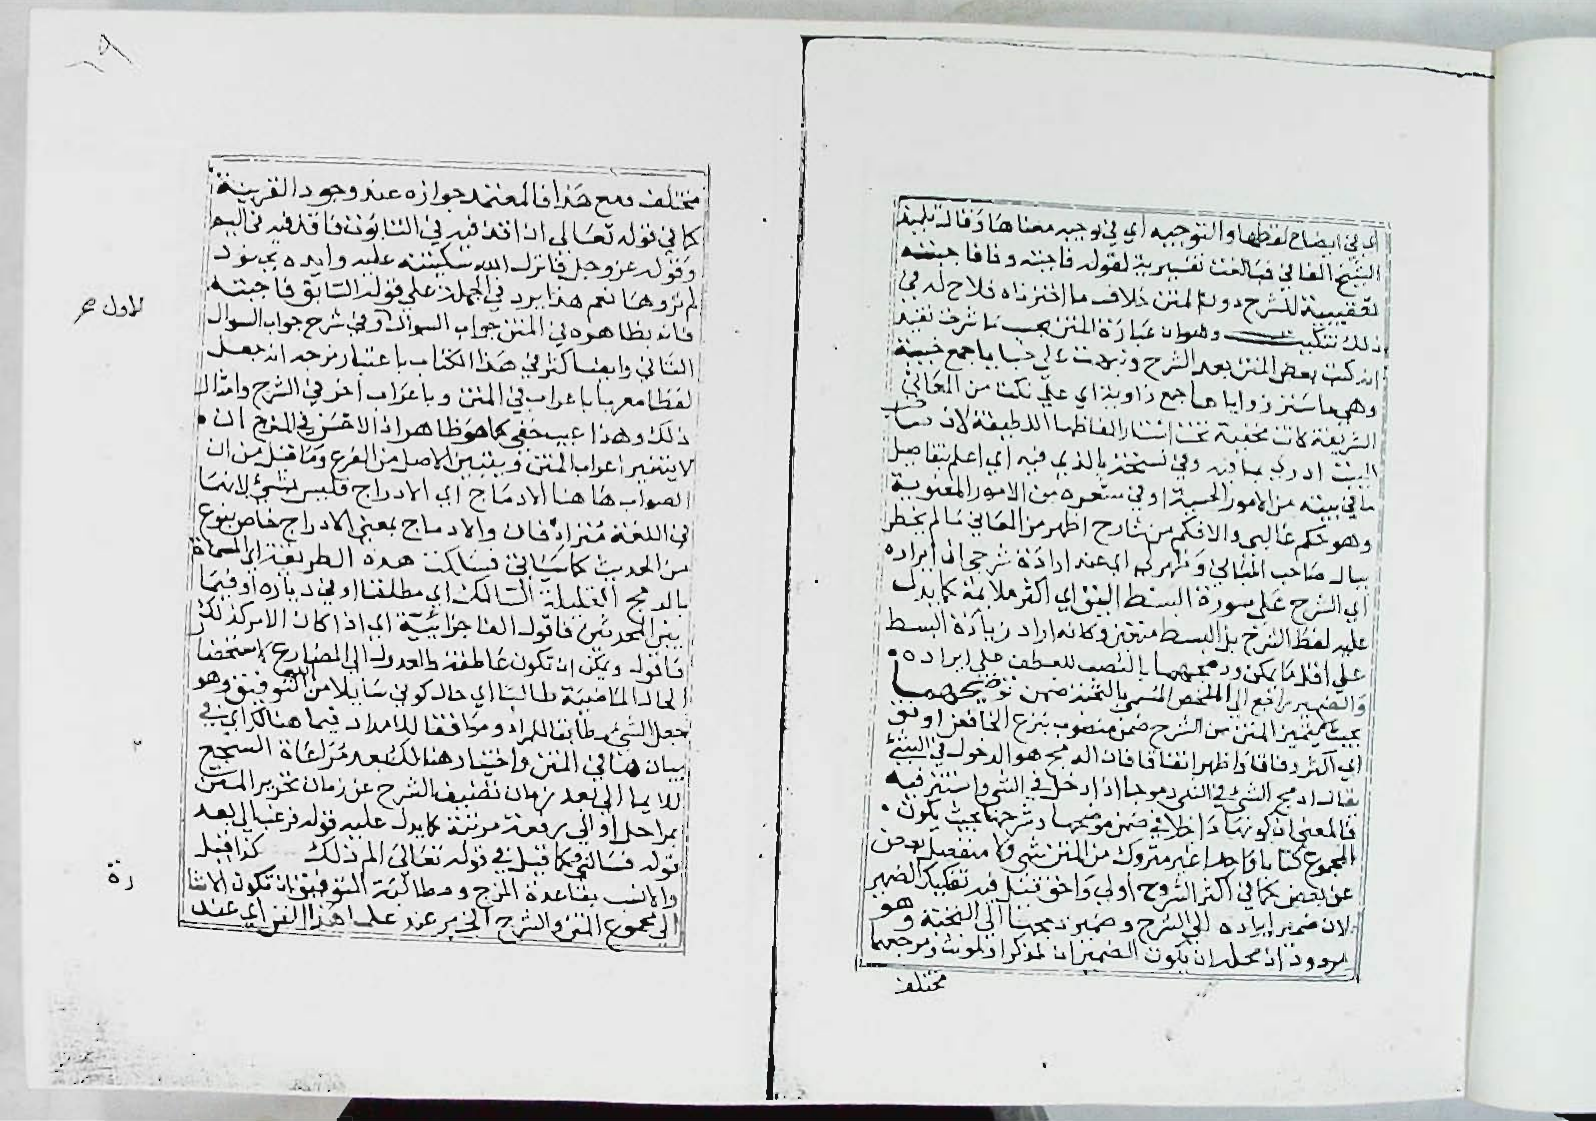 اي في ايضاح لفظها والتوجيه اي في توجيه معناها وقال تلميذ
الشيخ الفاء في فبالغت تفسيرية لقوله فاجبته وفا فاجبته
تعقيبية للشرح دون المتن خلاف ما اخترناه فلاح له في
ذلك تنكيت وهو ان عبارة المتن بحسب ما شرف تفيد
انه كتب بعض المتن بعد الشرح ونبهت على خبايا جمع خبية
وهي ما ستر زواياها جمع زاوية اي على نكت من المعاني
الشريفة كانت مخفية تحت استار الفاظها اللطيفة لان صاحب
البيت ادرى بما فيه وفي نسخة بالذي فيه اي اعلم بتفاصيل
ما في بيته من الامور الحسية او في شعره من الامور المعنوية
وهو حكم غالبي والا فكم من شارح اظهر من المعاني ما لم يخطر
ببال صاحب المباني وظهر لي اي عند ارادة شرحي ان ايراده
اي الشرح على سورة البسط اليق اي اكثر ملايمة كما يدل
عليه لفظ الشرح بل البسط متعين وكانه اراد زيادة البسط
على اقل ما يمكن ودمجها بالنصب للعطف على ايراده
والضمير راجع الى الملخص المسمى بالنخبة ضمن توضيحها
بحيث يتميز المتن من الشرح ضمن منصوب بنزع الخافض اوفق
اي اكثر وفاقا واظهر اتفاقا فان الدمج هو الدخول في الشئ
يقال ادمج الشئ في الشئ دموجا اذا دخل في الشي واستتر فيه
فالمعنى ان كونها داخلا في ضمن موضحها وشرحها بحيث يكون
المجموع كتابا واحدا غير متروك من المتن شي ولا منفصل بعض
عن بعض كما في اكثر الشروح اولى واخق قيل فيه تفكيك الضمير
لان ضمير ايراده الى الشرح وضمير دمجها الى النخبة وهو
مردود ان محله ان يكون الضميران لمذكر او لمونث ومرجعهما
مختلف
٢٩
مختلف ومع هذا فالمعتمد جوازه عند وجود القرينة
كما في قوله تعالى ان اقذفيه في التابوت فاقذفيه في اليم
وقوله عز وجل فانزل الله سكينته عليه وايده بجنود
لم تروها نعم هذا يرد في الجملة على قوله السابق فاجبته
للاول صح
فانه بظاهره في المتن جواب السوال وفي شرح جواب السوال
الثاني وايضا كثر في هذا الكتاب باعتبار مزجه انه جعل
لفظا معربا باعراب في المتن وباعراب اخر في الشرح وامثال
ذلك وهذا عيب خفي كما هو ظاهر اذ الاحسن في المزج ان
لا يتغير اعراب المتن ويتبين الاصل من الفرع وما قيل من ان
الصواب هاهنا الادماج اي الادراج فليس بشئ لانهما
في اللغة مترادفان والادماج بمعنى الادراج خاص بنوع
من الحديث كما سياتي فسلكت هذه الطريقة اي المسماة
بالدمج القليلة السالك اي مطلقا او في دياره او فيما
بين المحدثين فاقول الفا جزائية اي اذا كان الامر كذلك
فاقول ويمكن ان تكون عاطفة والعدول الى المضارع لاستحضار
الحال الماضية طالبا اي حال كوني سايلا من الله التوفيق وهو
جعل الشئ مطابقا للمراد وموافقا للامداد فيما هنالك اي في
بيان ما في المتن واختيار هنالك بعد مراعاة السجع
للايما الى بعد زمان تصنيف الشرح عن زمان تحرير المتن
بمراحل او الى رفعة مرتبته كما يدل عليه قوله فرغب الي بعد
قوله فسالني وكما قيل في قوله تعالى الم ذلك كذا قيل
والانسب بقاعدة المزج ومطالبة التوفيق ان تكون الاشا
رة
الى مجموع المتن والشرح الخبر عند علماء هذا الفن اي عند